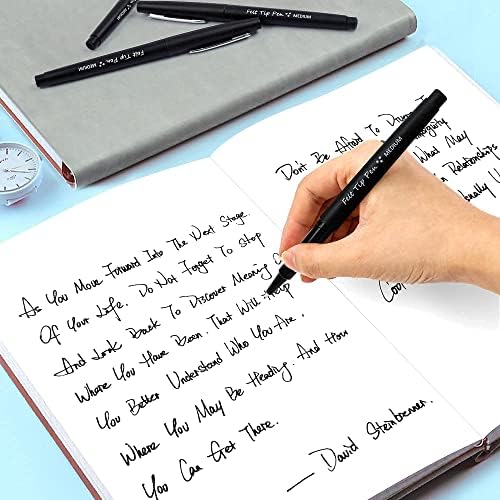 Felt Tip Pen MEDIUM
Felt Tip Pen MEDIUM
Felt Tip Pen MEDIUM
As You Move Forward Into The Next Stage
Of Your Life. Do Not Forget To Stop
And Look Back To Discover Meaning
Where You Have Been. That Will Help
You Better Understand Who You Are,
Where You May Be Heading. And How
You Can Get There.
— David Steinbrenner.
Don't Be Afraid To
What May
Relationships
Felt Tip Pen MEDIUM